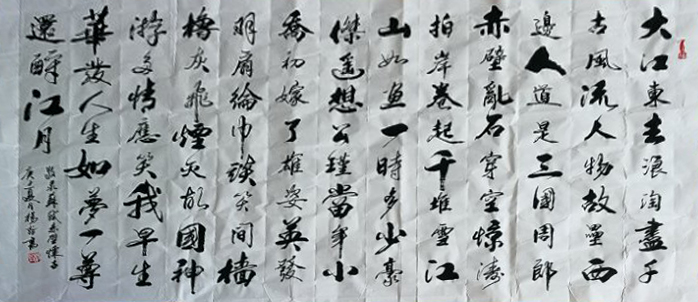 大江東去浪淘盡千
古風流人物故壘西
邊人道是三國周郎
赤壁亂石穿空惊濤
拍岸卷起千堆雪江
山如畫一時多少豪
傑遙想公瑾當年小
喬初嫁了雄姿英發
羽扇綸巾談笑間檣
櫓灰飛煙灭故國神
游多情應笑我早生
華發人生如夢一尊
還酹江月
宋蘇軾赤壁懷古
庚子夏月楊書